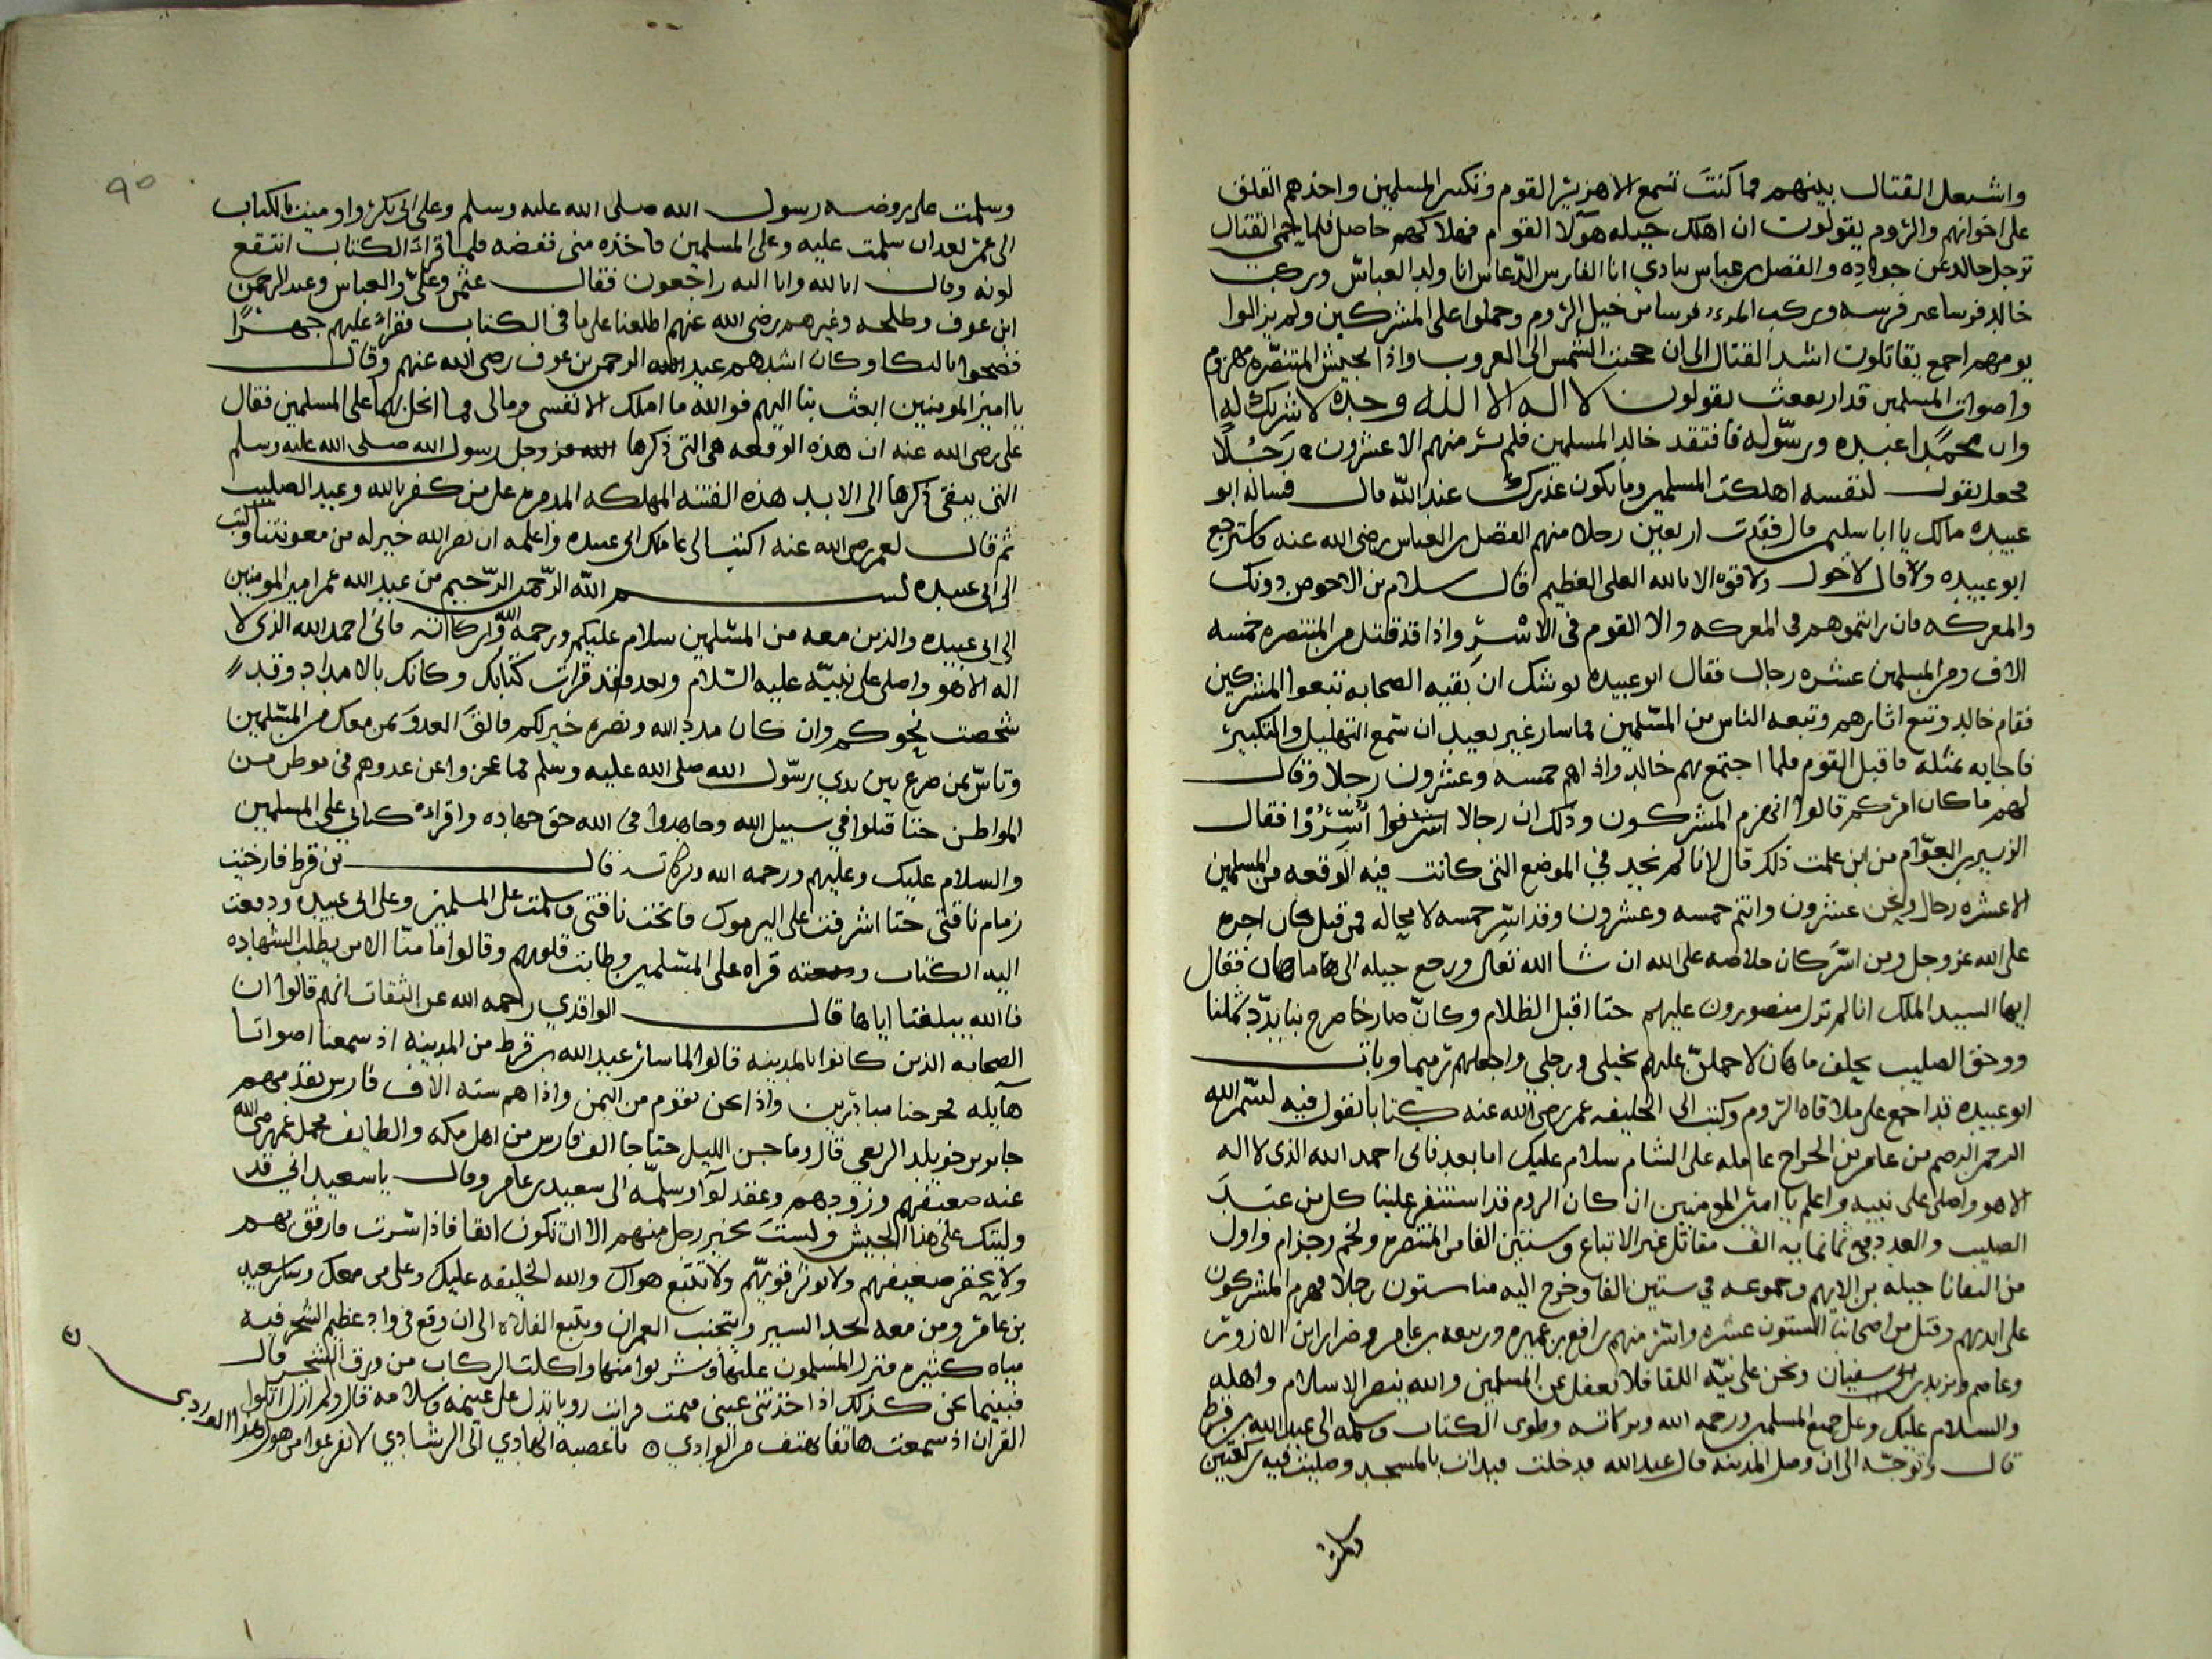 واشتعل القتال بينهم فما كنت تسمع الا هزيز القوم وتكبير المسلمين واخذهم القلق
على اخوانهم والروم يقولون ان اهلك جبله هولا القوم فهلاكهم حاصل فلما حمى القتال
ترجل خالد عن جواده والفضل بن عباس ينادي انا الفارس الدعاس انا ولد العباس وركب
خالد فرسا غير فرسه وركب فرسا من خيل الروم وحملوا على المشركين ولم يزالوا
يومهم اجمع يقاتلون اشد القتال الى ان جنحت الشمس الى الغروب واذا بجيش المتنصره مهزوم
واصوات المسلمين قد ارتفعت يقولون لا اله الا الله وحده لا شريك له
وان محمدا عبده ورسوله فافتقد خالد المسلمين فلم ير منهم الا عشرون رجلا
فجعل يقول لنفسه اهلكت المسلمين وما يكون عذرك عند الله قال فساله ابو
عبيده مالك يا ابا سليمن قال فقدت اربعين رجلا منهم الفضل بن العباس رضي الله عنه فاسترجع
ابو عبيده وقال لا حول ولا قوه الا بالله العلي العظيم قال سلام بن الاحوص دونك
والمعركه فان رايتموهم في المعركه والا القوم في الاسر واذا قد قتل من المتنصره خمسه
الاف ومن المسلمين عشره رجال فقال ابو عبيده يوشك ان بقيه الصحابه تتبعوا المشركين
فقام خالد وتبع اثارهم وتبعه الناس من المسلمين فما سار غير بعيد ان سمع التهليل والتكبير
فاجابه بمثله فاقبل القوم فلما اجتمع بهم خالد واذا هم خمسه وعشرون رجلا وقال
لهم ما كان امركم قالوا انهزم المشركون وذلك ان رجالا اسروا فقال
الزبير بن العوام من اين علمت ذلك قال لانا لم نجد في الموضع التي كانت فيه الوقعه من المسلمين
الا عشره رجال ونحن عشرون وانتم خمسه وعشرون وقد اسر خمسه لا محاله فمن قتل كان اجره
على الله عز وجل ومن اسر كان خلاصه على الله ان شا الله تعالى ورجع جبله الى هامان فقال
ايها السيد الملك انا لم نزل منصورون عليهم حتا اقبل الظلام وكان صارخا صرخ بنا بدد شملنا
ووحق الصليب يحلف ماهان لاحملن عليهم بخيلي ورجلي واجعلهم رميما وبات
ابو عبيده قد اجمع على ملاقاه الروم وكتب الى الخليفه عمر رضي الله عنه كتابا يقول فيه بسم الله
الرحمن الرحيم من عامر بن الجراح عامله على الشام سلام عليك اما بعد فاني احمد الله الذي لا اله
الا هو واصلي على نبيه واعلم يا امير المومنين ان كان الروم قد استنفر علينا كل من عبد
الصليب والعدد في ثمانمايه الف مقاتل غير الاتباع وستين الفا من المتنصره ولخم وجذام واول
من التقانا جبله بن الايهم وجموعه في ستين الفا وخرج اليه منا ستون رجلا فهزم المشركون
على ايديهم وقتل من اصحابنا الستون عشره واسر منهم رافع بن عميره وربيعه بن عامر وضرار بن الازور
وعاصم ويزيد بن ابي سفيان ونحن على نيه اللقا فلا تغفل عن المسلمين والله ينصر الاسلام واهله
والسلام عليك وعلى جميع المسلمين ورحمه الله وبركاته وطوى الكتاب وسلمه الى عبد الله بن قرط
قال وتوجه الى ان وصل المدينه قال عبد الله فدخلت فبدات بالمسجد وصليت فيه ركعتين
وسلمت
٩٥
وسلمت على روضه رسول الله صلى الله عليه وسلم وعلى ابي بكر واوميت بالكتاب
الى عمر بعد ان سلمت عليه وعلى المسلمين فاخذه مني ففضه فلما قرات الكتاب انتقع
لونه وقال انا لله وانا اليه راجعون فقال عثمن وعلي والعباس وعبد الرحمن
ابن عوف وطلحه وغيرهم رضي الله عنهم اطلعنا على ما في الكتاب فقراه عليهم جهرا
فضجوا بالبكا وكان اشدهم عبد الرحمن بن عوف رضي الله عنهم وقال
يا امير المومنين ابعث بنا اليهم فوالله ما املك الا نفسي ومالي وما ابخل بهما على المسلمين فقال
علي رضي الله عنه ان هذه الوقعه هي التي ذكرها رسول الله صلى الله عليه وسلم
التي يبقى ذكرها الى الابد هذه الفتنه المهلكه المدمره على من كفر بالله وعبد الصليب
ثم قال لعمر رضي الله عنه اكتب الى عاملك ابي عبيده واعلمه ان نصر الله خير له من معونتنا وكتب
الى ابي عبيده بسم الله الرحمن الرحيم من عبد الله عمر امير المومنين
الى ابي عبيده والذين معه من المسلمين سلام عليكم ورحمه الله وبركاته فاني احمد الله الذي لا
اله الا هو واصلي على نبيه عليه السلام وبعد فقد قرات كتابك وكانك بالامداد وقد
شخصت نحوكم وان كان مدد الله ونصره خير لكم فالق العدو بمن معك من المسلمين
وتاس بمن صرع بين يدي رسول الله صلى الله عليه وسلم فما عجزوا عن عدوهم في موطن من
المواطن حتا قتلوا في سبيل الله وجاهدوا في الله حق جهاده واقراه كتابي على المسلمين
والسلام عليك وعليهم ورحمه الله وبركاته قال بن قرط فارخيت
زمام ناقتي حتا اشرفت على اليرموك فانخت ناقتي وسلمت على المسلمين وعلى ابي عبيده ودفعت
اليه الكتاب قراه على المسلمين وطابت قلوبهم وقالوا ما منا الا من يطلب الشهاده
فالله يبلغنا اياها قال الواقدي رحمه الله عن الثقات انهم قالوا ان
الصحابه الذين كانوا بالمدينه قالوا لما سار عبد الله بن قرط من المدينه اذ سمعنا اصواتا
هايله فخرجنا مبادرين واذا نحن بقوم من اليمن واذا هم سته الاف فارس يقدمهم
جابر بن خويلد الربعي قال وما جن الليل حتا جا الف فارس من اهل مكه والطايف فحمل عمر رضي الله
عنه ضعيفهم وزودهم وعقد لوا وسلمه الى سعيد بن عامر وقال يا سعيد اني قد
وليتك على هذا الجيش ولست بخير رجل منهم الا ان تكون اتقا فاذا سرت فارفق بهم
ولا تحقر ضعيفهم ولا توثر قويهم ولا تتبع هواك والله الخليفه عليك وعلى من معك وسار سعيد
بن عامر ومن معه يجد السير ويتجنب العمران ويتبع الفلاه الى ان وقع في واد عظيم الشجر فيه
مياه كثيره فنزل المسلمون عليها وشربوا منها واكلت الركاب من ورق الشجر قال
فبينما نحن كذلك اذ اخذتني عيني فنمت فرايت رويا تدل على غنيمه وسلامه قال ولم ازل اتلوا
القران اذ سمعت هاتفا يهتف من الوادي يا عصبه الهادي الى الرشادي لا تفزعوا من هول هذا الوادي